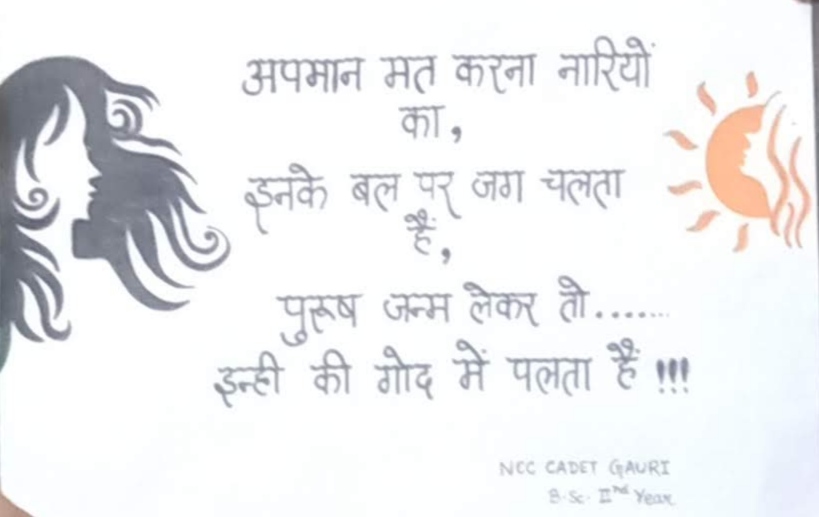 अपमान मत करना नारियों
का,
इनके बल पर जग चलता
हैं,
पुरूष जन्म लेकर तो.......
इन्ही की गोद में पलता हैं !!!
NCC CADET GAURI
B.Sc. IInd Year